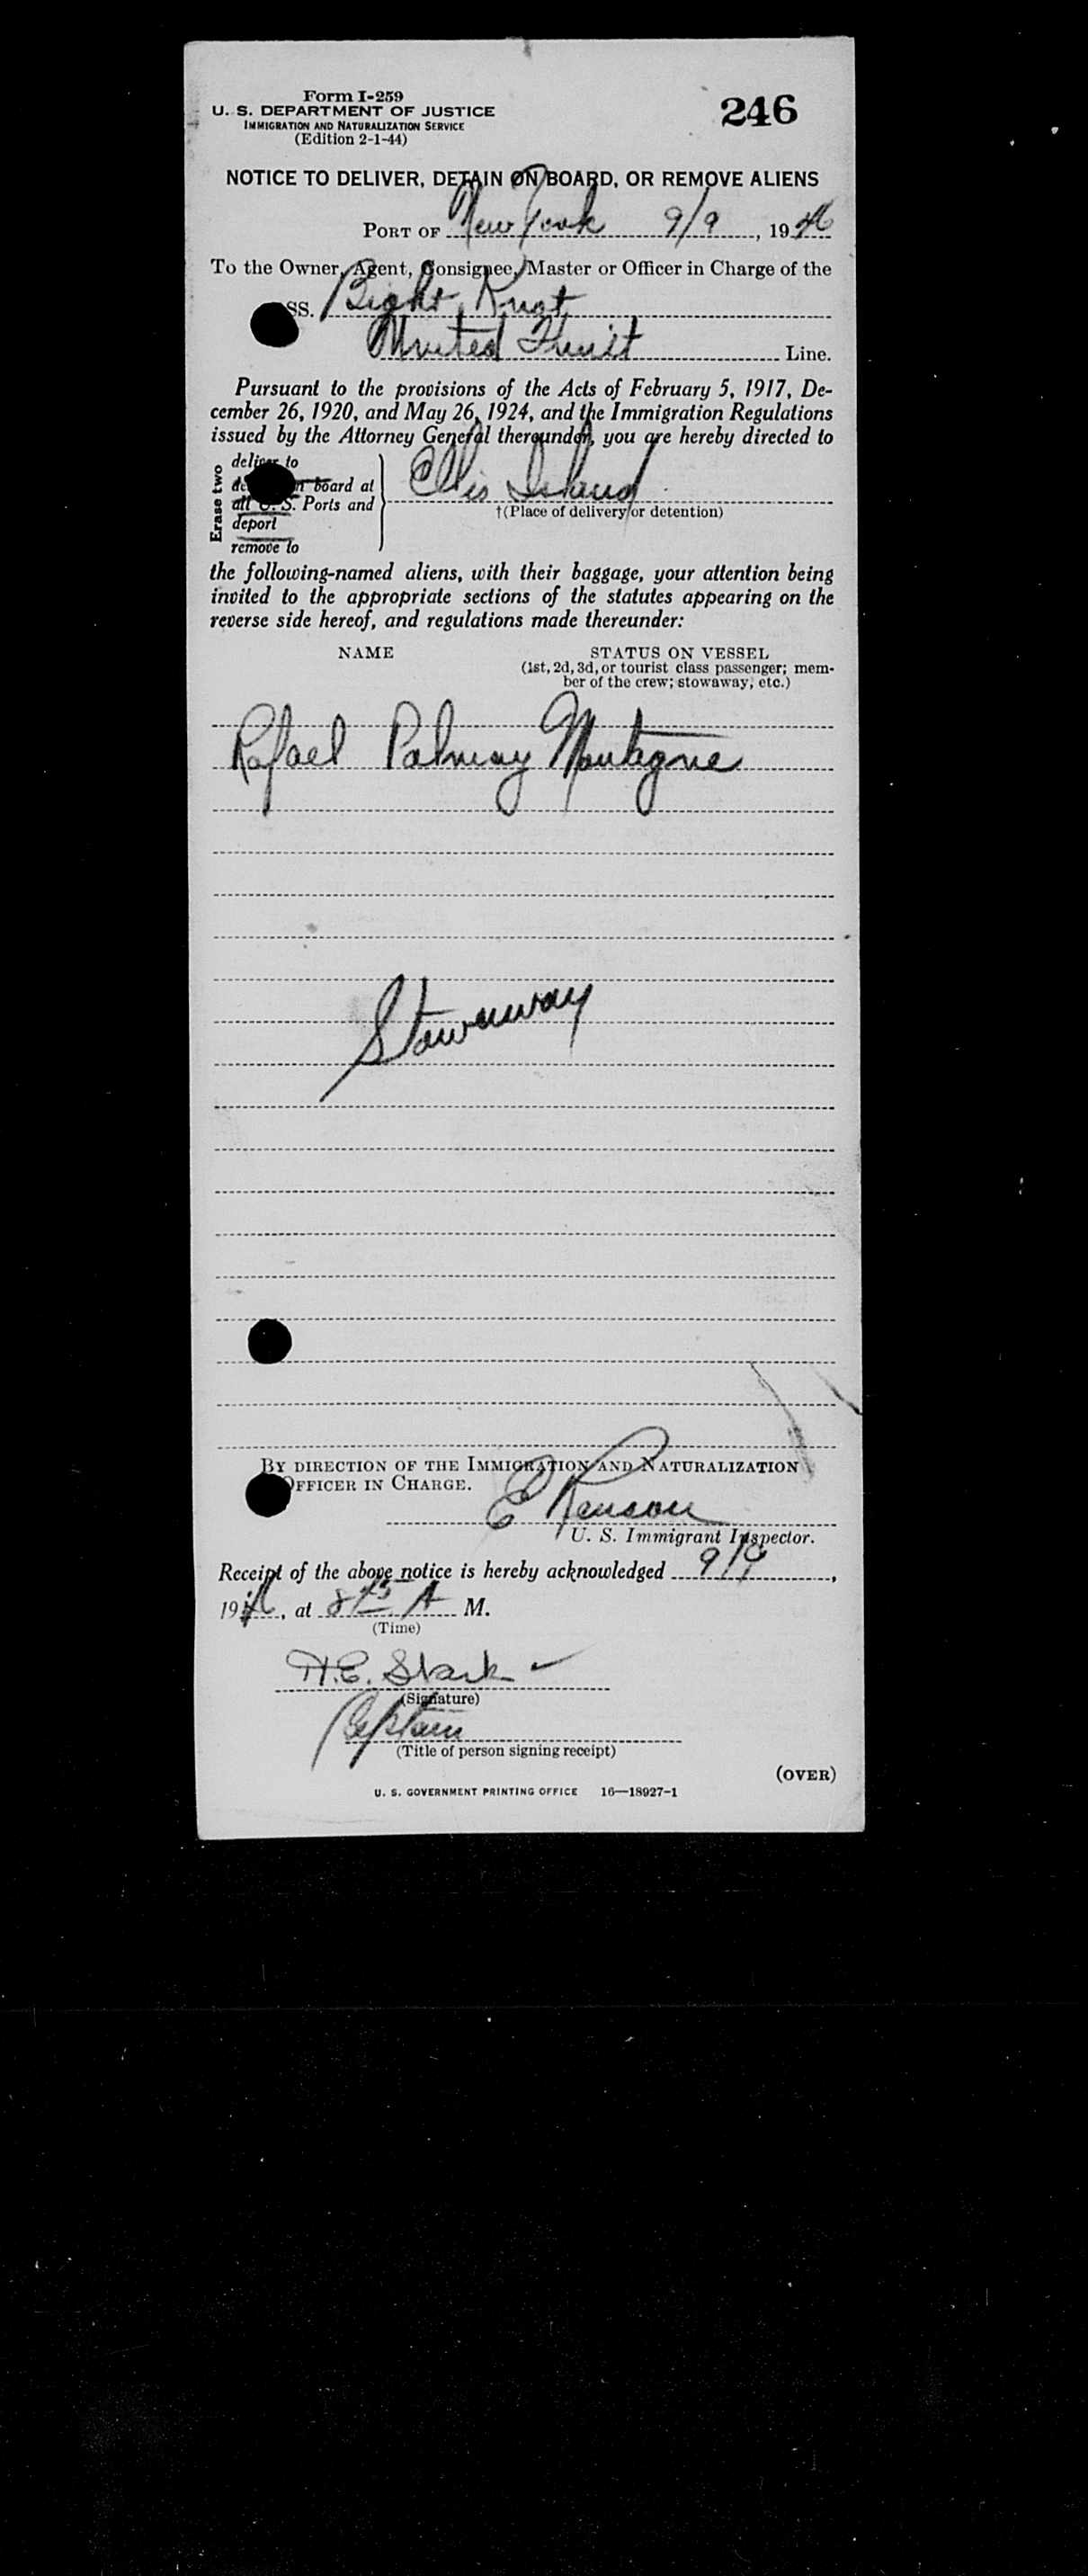 Form I-259
U. S. DEPARTMENT OF JUSTICE
IMMIGRATION AND NATURALIZATION SERVICE
(Edition 2-1-44)
246
NOTICE TO DELIVER, DETAIN ON BOARD, OR REMOVE ALIENS
PORT OF New York 9/9, 1946
To the Owner, Agent, Consignee, Master or Officer in Charge of the
SS. Bight Knot
United Fruit Line.
Pursuant to the provisions of the Acts of February 5, 1917, De-
cember 26, 1920, and May 26, 1924, and the Immigration Regulations
issued by the Attorney General thereunder, you are hereby directed to
Erase two
deliver to
board at
all U. S. Ports and
deport
remove to
Ellis Island
†(Place of delivery or detention)
the following-named aliens, with their baggage, your attention being
invited to the appropriate sections of the statutes appearing on the
reverse side hereof, and regulations made thereunder:
NAME STATUS ON VESSEL
(1st, 2d, 3d, or tourist class passenger; mem-
ber of the crew; stowaway, etc.)
Rafael
Stowaway
BY DIRECTION OF THE IMMIGRATION AND NATURALIZATION
OFFICER IN CHARGE.
E
U. S. Immigrant Inspector.
Receipt of the above notice is hereby acknowledged 9/9,
1946, at 8 45 A M.
(Time)
H.E. Stark
(Signature)
Captain
(Title of person signing receipt)
(OVER)
U. S. GOVERNMENT PRINTING OFFICE 16—18927-1